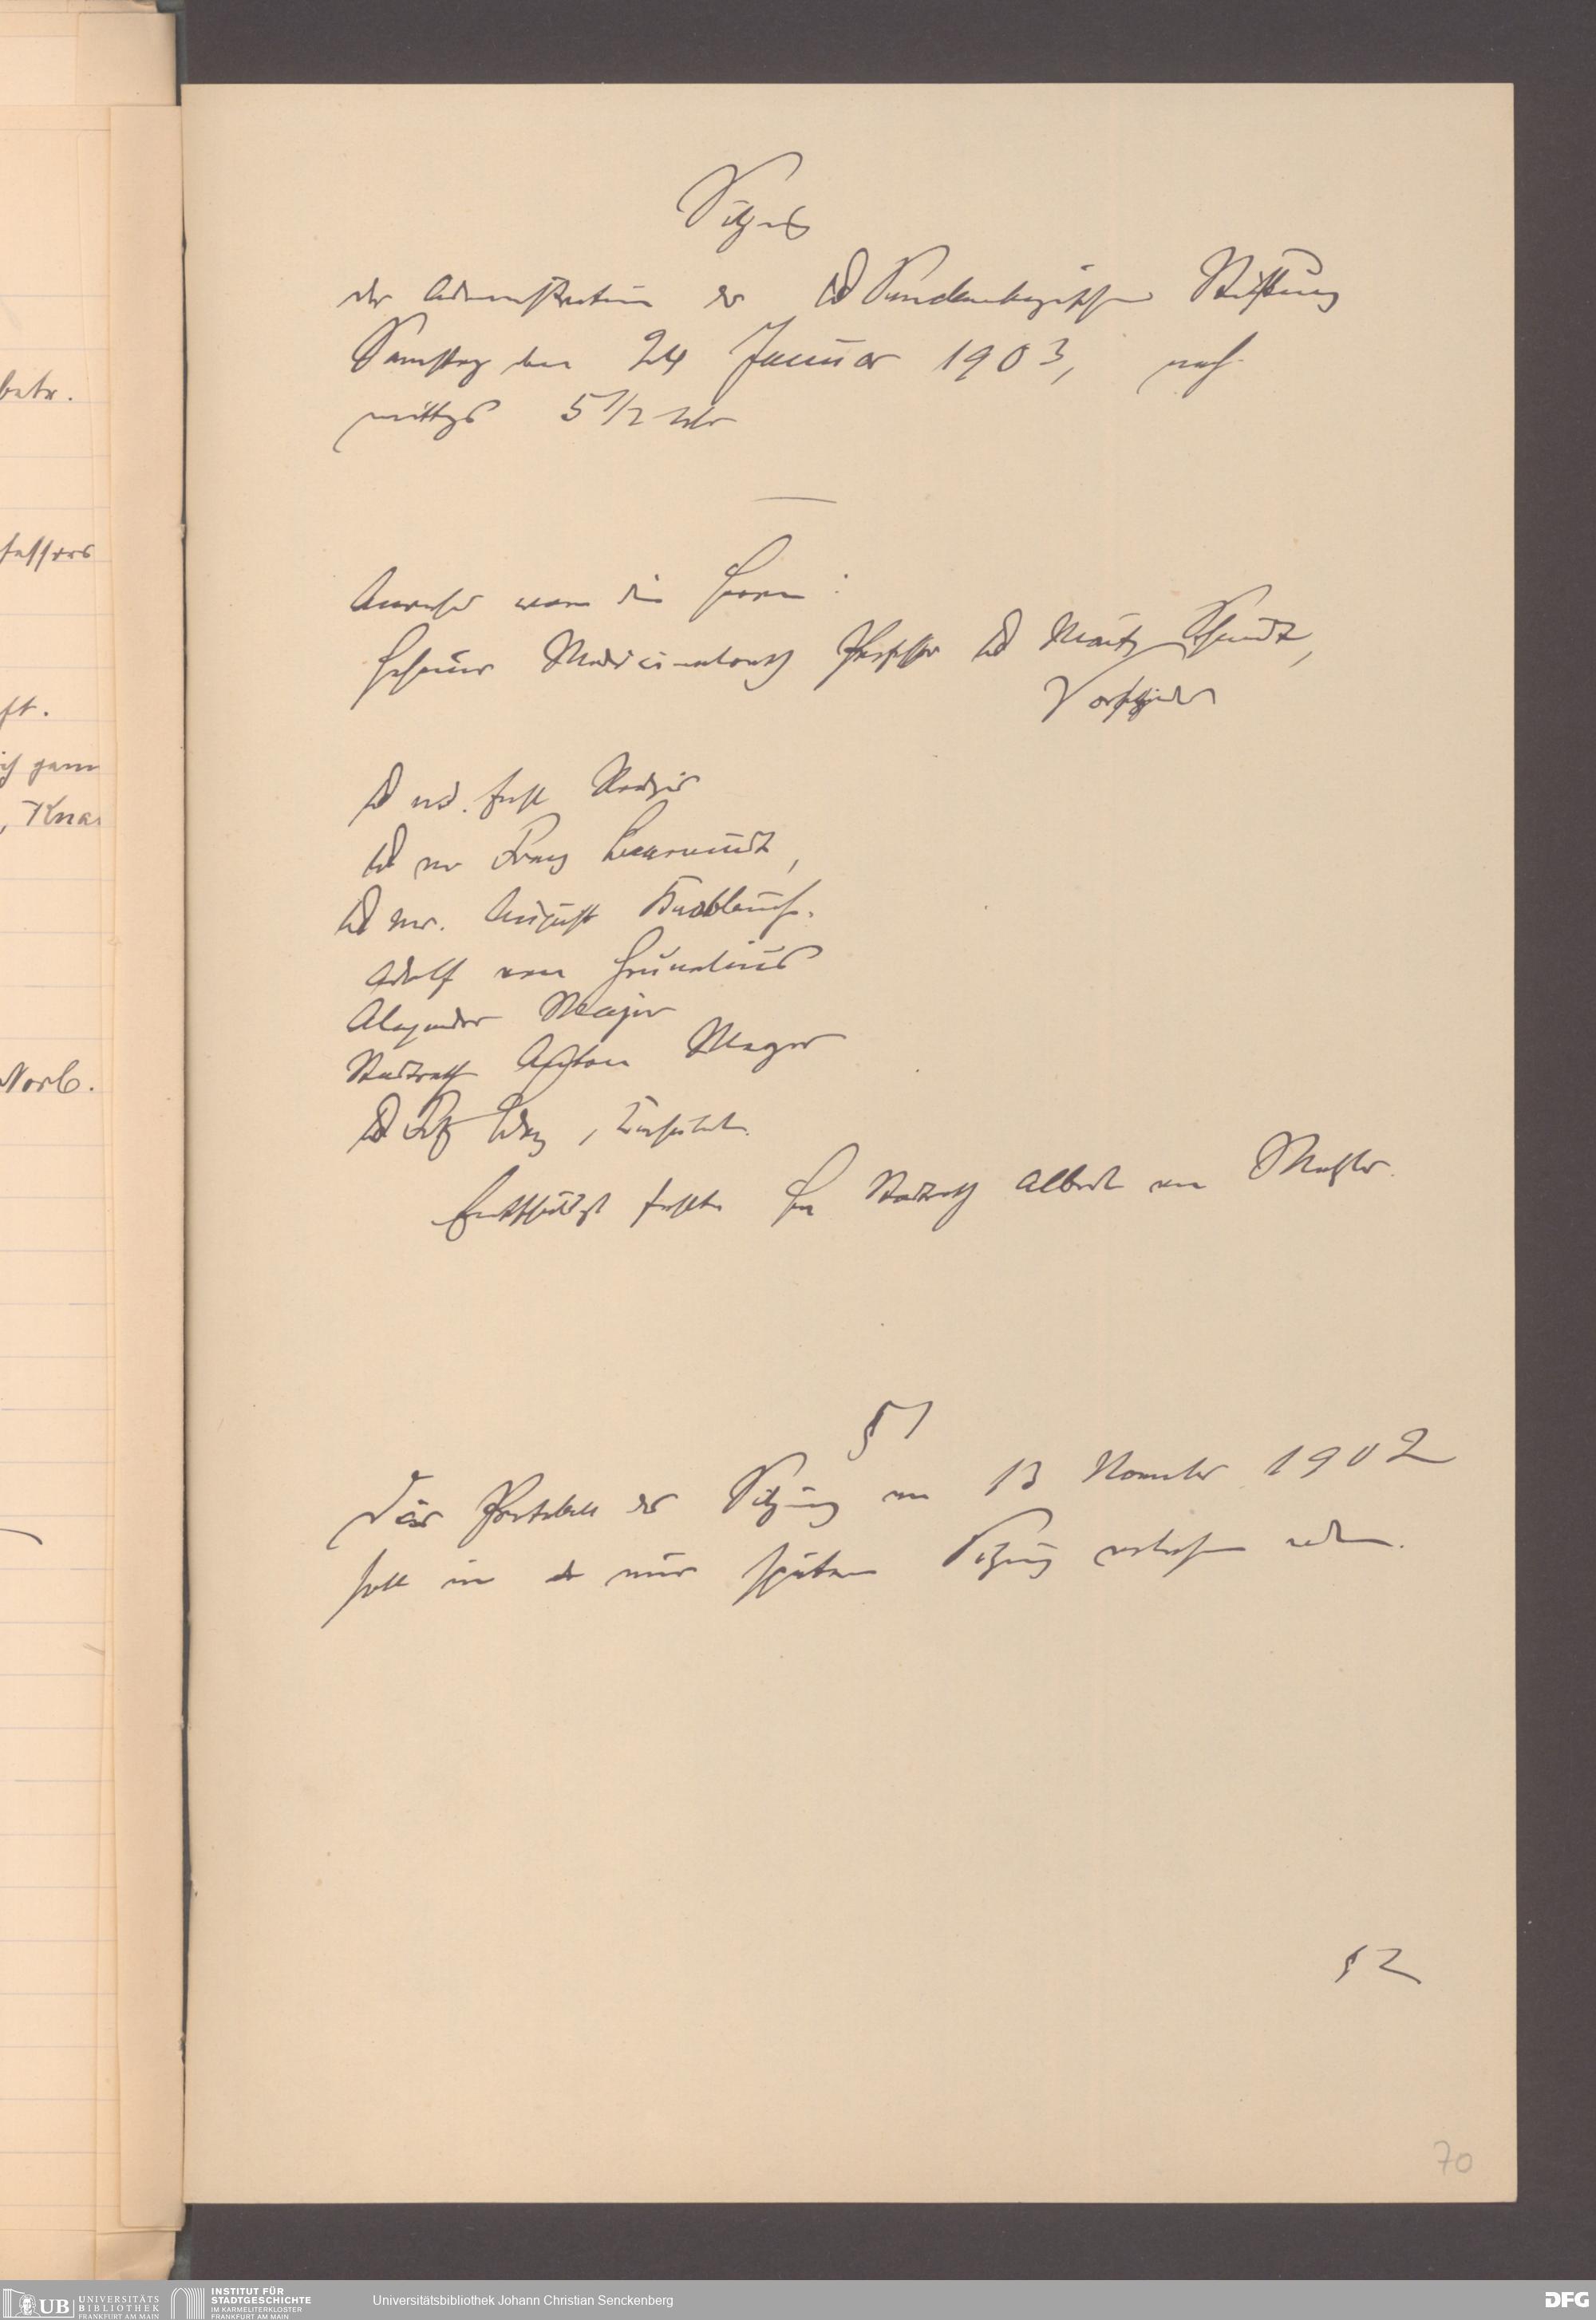 betr.
fessors
ft.
ich gem
, Kna
Vorb.
Sitzung
der Administration der Dr Senckenbergischen Stiftung
Samstag den 24 Januar 1903, nach
mittags 5 1/2 Uhr
Anwesend waren die Herren:
Geheimer Medicinalrath Professor Dr Moritz Schmidt,
Vorsitzender
Dr med. Ernst Roediger
Dr med
Dr med. August Knoblauch.
Adolf von Grunelius
Alexander Majer
Stadtrath Anton Meyer
Dr Fritz Berg, Konsulent.
Entschuldigt fehlte Herr Stadtrath Albert von Metzler.
§ 1
Das Protokoll der Sitzung vom 13 November 1902
soll in der einer späteren Sitzung verlesen werden.
§ 2
70
UB UNIVERSITÄTS
BIBLIOTHEK
FRANKFURT AM MAIN
INSTITUT FÜR
STADTGESCHICHTE
IM KARMELITERKLOSTER
FRANKFURT AM MAIN
Universitätsbibliothek Johann Christian Senckenberg
DFG